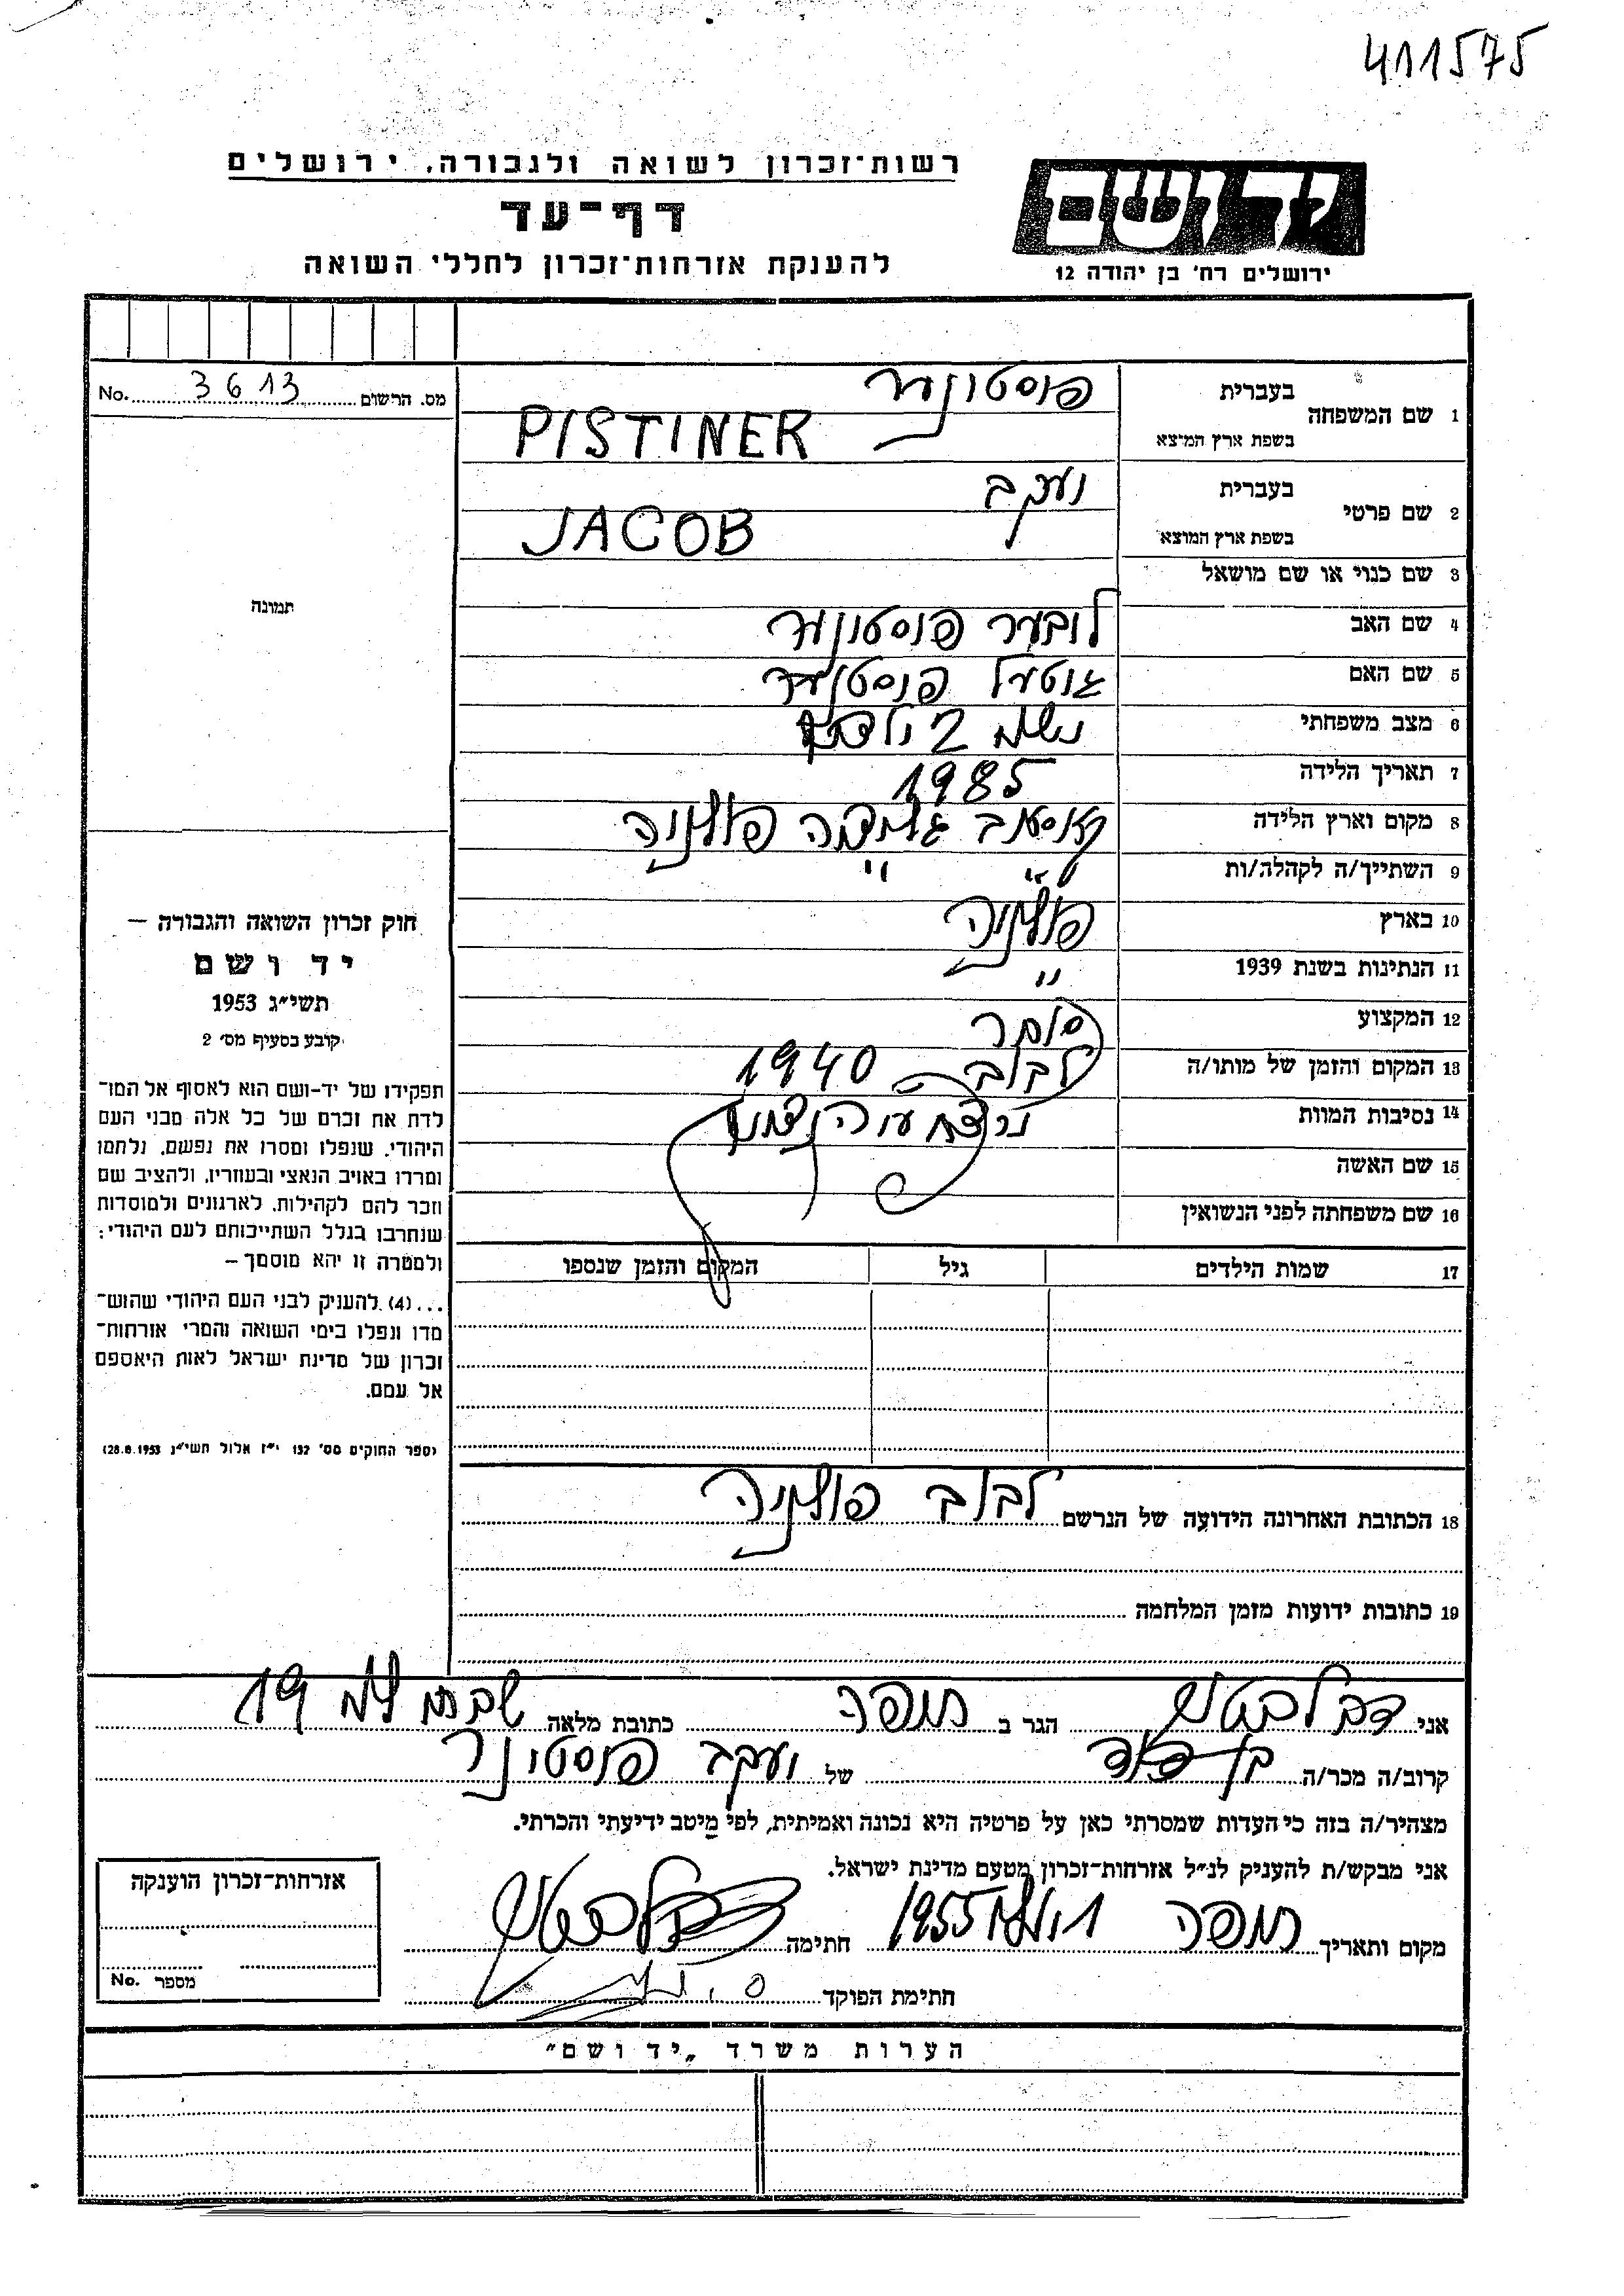 411575
רשות־זכרון לשואה ולגבורה, ירושלים
דף־עד
להענקת אזרחות־זכרון לחללי השואה
יד ושם
ירושלים רח' בן יהודה 12
מס. הרשום 3613 No.
תמונה
חוק זכרון השואה והגבורה –
יד ושם
תשי"ג 1953
קובע בסעיף מס' 2
תפקידו של יד-ושם הוא לאסוף אל המו־
לדת את זכרם של כל אלה מבני העם
היהודי, שנפלו ומסרו את נפשם, נלחמו
ומרדו באויב הנאצי ובעוזריו, ולהציב שם
וזכר להם לקהילות, לארגונים ולמוסדות
שנחרבו בגלל השתייכותם לעם היהודי;
ולמטרה זו יהא מוסמך –
...(4) להעניק לבני העם היהודי שהוש־
מדו ונפלו בימי השואה והמרי אזרחות־
זכרון של מדינת ישראל לאות היאספם
אל עמם.
(ספר החוקים מס' 132 י"ז אלול תשי"ג 28.8.1953)
1 שם המשפחה
בעברית פיסטינער
בשפת ארץ המוצא PISTINER
2 שם פרטי
בעברית יעקב
בשפת ארץ המוצא JACOB
3 שם כנוי או שם מושאל
4 שם האב ליבער פיסטינער
5 שם האם גיטעל פיסטינער
6 מצב משפחתי נשוי 2 ילדים
7 תאריך הלידה 1985
8 מקום וארץ הלידה קוסוב גליציה פולניה
9 השתייך/ה לקהלה/ות " "
10 בארץ פולניה
11 הנתינות בשנת 1939 "
12 המקצוע סוחר
13 המקום והזמן של מותו/ה לבוב 1940
14 נסיבות המוות נרצח ע"י הנאצים
15 שם האשה
16 שם משפחתה לפני הנשואין
17 שמות הילדים גיל המקום והזמן שנספו
18 הכתובת האחרונה הידועה של הנרשם לבוב פולניה
19 כתובות ידועות מזמן המלחמה
אני דב הגר ב חיפה כתובת מלאה 19
קרוב/ה מכר/ה בן דוד של יעקב פיסטינר
מצהיר/ה בזה כי העדות שמסרתי כאן על פרטיה היא נכונה ואמיתית, לפי מיטב ידיעתי והכרתי.
אני מבקש/ת להעניק לנ"ל אזרחות־זכרון מטעם מדינת ישראל.
מקום ותאריך חיפה 1 יולי 1955 חתימה
חתימת הפוקד
אזרחות־זכרון הוענקה
מספר No.
הערות משרד „יד ושם"